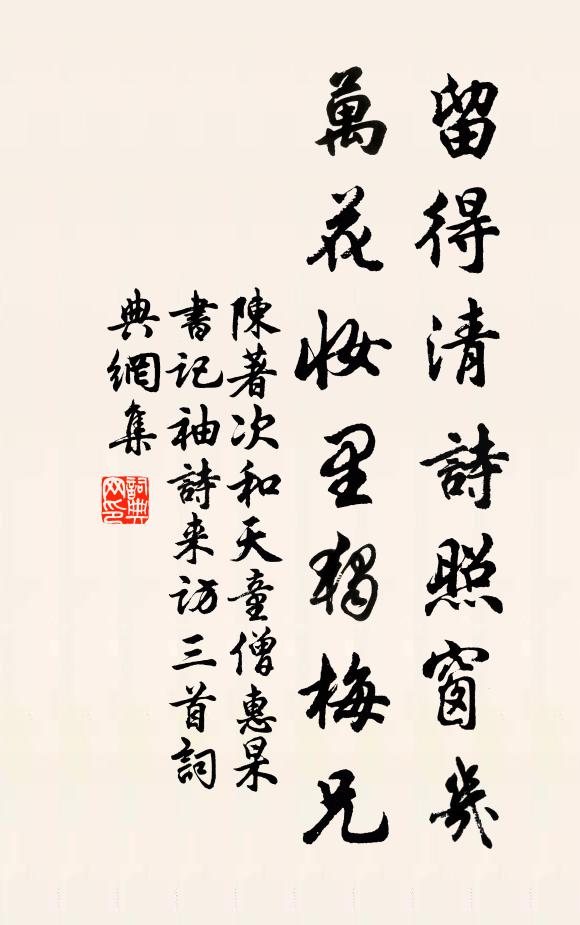 留得清詩照窗几
萬花妝里獨梅兄
陳著次和天童僧惠杲
書記袖詩来訪三首詞
典網集
詞典网印